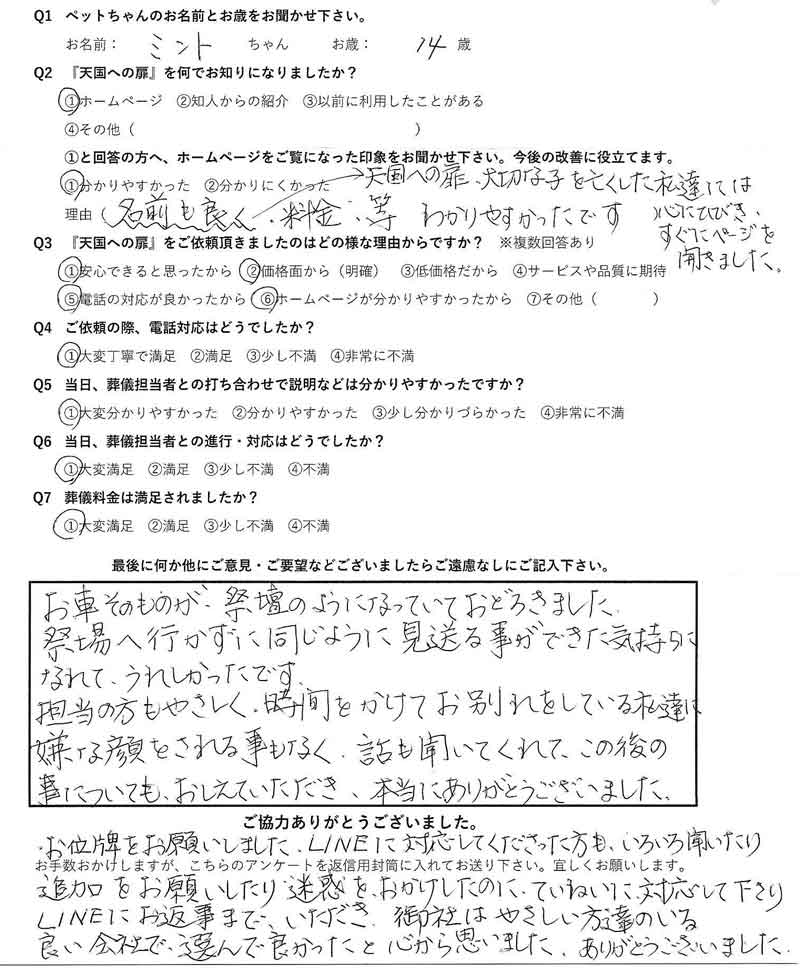 Q1 ペットちゃんのお名前とお歳をお聞かせ下さい。
お名前： ミント ちゃん お歳： 14 歳
Q2 『天国への扉』を何でお知りになりましたか？
①ホームページ ②知人からの紹介 ③以前に利用したことがある
④その他（ ）
①と回答の方へ、ホームページをご覧になった印象をお聞かせ下さい。今後の改善に役立てます。
①分かりやすかった ②分かりにくかった →天国への扉、大切な子を亡くした私達には
理由（ 名前も良く、料金、等 わかりやすかったです ）心にひびき、
すぐにページを
開きました。
Q3 『天国への扉』をご依頼頂きましたのはどの様な理由からですか？ ※複数回答あり
①安心できると思ったから ②価格面から（明確） ③低価格だから ④サービスや品質に期待
⑤電話の対応が良かったから ⑥ホームページが分かりやすかったから ⑦その他（ ）
Q4 ご依頼の際、電話対応はどうでしたか？
①大変丁寧で満足 ②満足 ③少し不満 ④非常に不満
Q5 当日、葬儀担当者との打ち合わせで説明などは分かりやすかったですか？
①大変分かりやすかった ②分かりやすかった ③少し分かりづらかった ④非常に不満
Q6 当日、葬儀担当者との進行・対応はどうでしたか？
①大変満足 ②満足 ③少し不満 ④不満
Q7 葬儀料金は満足されましたか？
①大変満足 ②満足 ③少し不満 ④不満
最後に何か他にご意見・ご要望などございましたらご遠慮なしにご記入下さい。
お車そのものが、祭壇のようになっていておどろきました。
祭場へ行かずに同じように見送る事ができた気持ちに
なれて、うれしかったです。
担当の方もやさしく、時間をかけてお別れをしている私達に
嫌な顔をされる事もなく、話も聞いてくれて、この後の
事についても、おしえていただき、本当にありがとうございました。
ご協力ありがとうございました。
・お位牌をお願いしました、LINEに対応してくださった方も、いろいろ聞いたり
お手数おかけしますが、こちらのアンケートを返信用封筒に入れてお送り下さい。宜しくお願いします。
追加をお願いしたり迷惑を、おかけしたのに、ていねいに、対応して下さり
LINEにお返事まで、いただき、御社はやさしい方達のいる
良い会社で、選んで良かったと心から思いました、ありがとうございました。